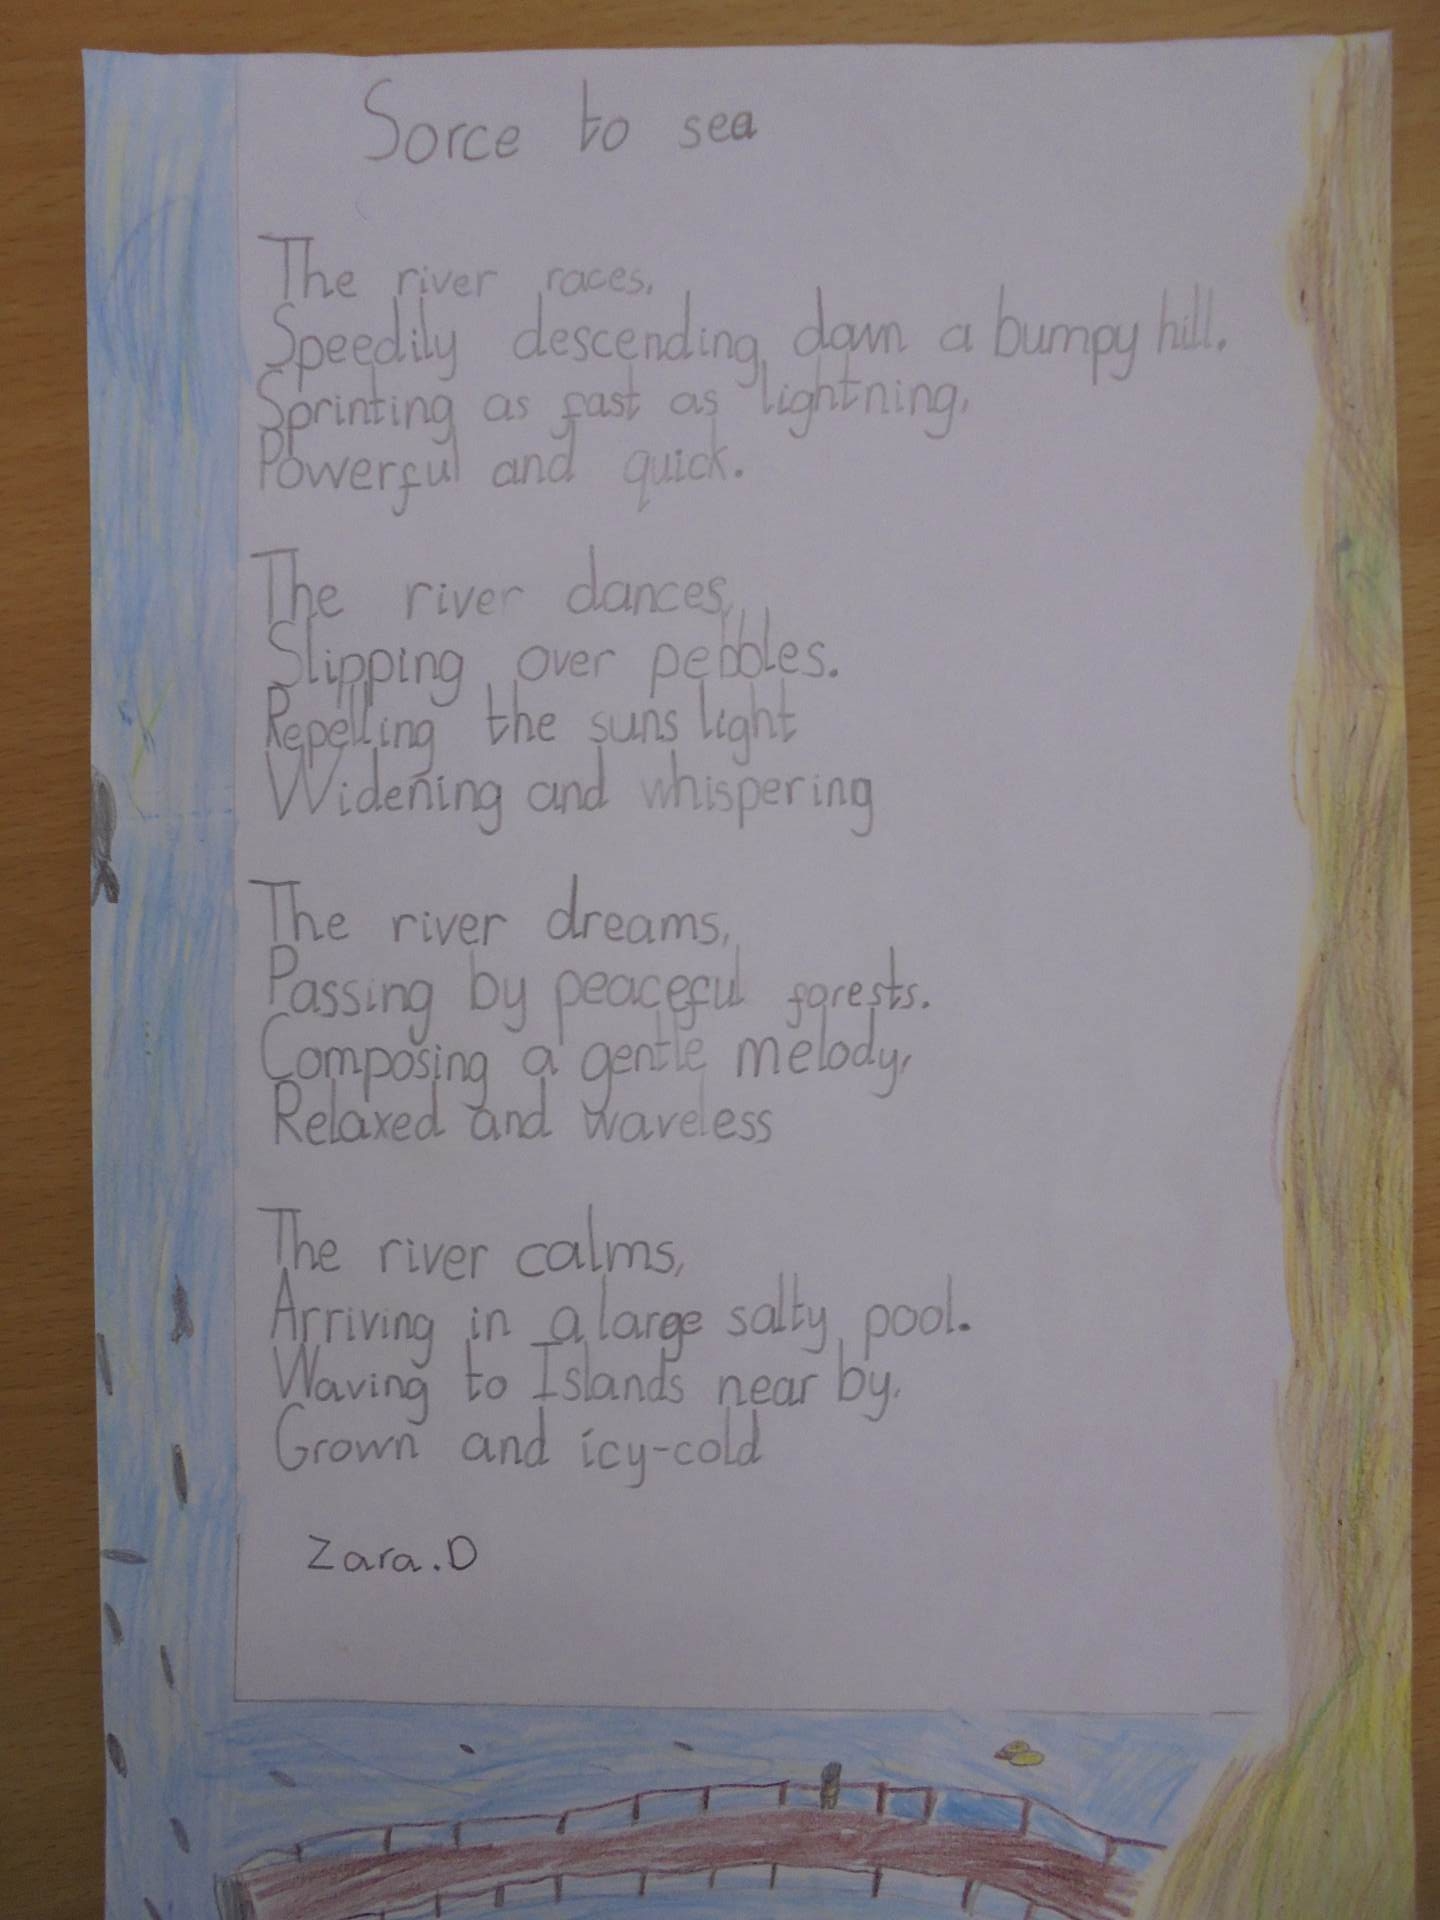 Sorce to sea
The river races,
Speedily descending down a bumpy hill.
Sprinting as fast as lightning,
Powerful and quick.
The river dances,
Slipping over pebbles.
Repelling the suns light
Widening and whispering
The river dreams,
Passing by peaceful forests.
Composing a gentle melody,
Relaxed and waveless
The river calms,
Arriving in a large salty pool.
Waving to Islands near by.
Grown and icy-cold
Zara.D